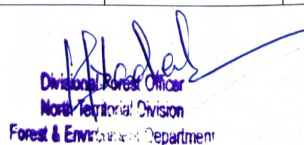 Divisional Forest Officer
North Territorial Division
Forest & Environment Department